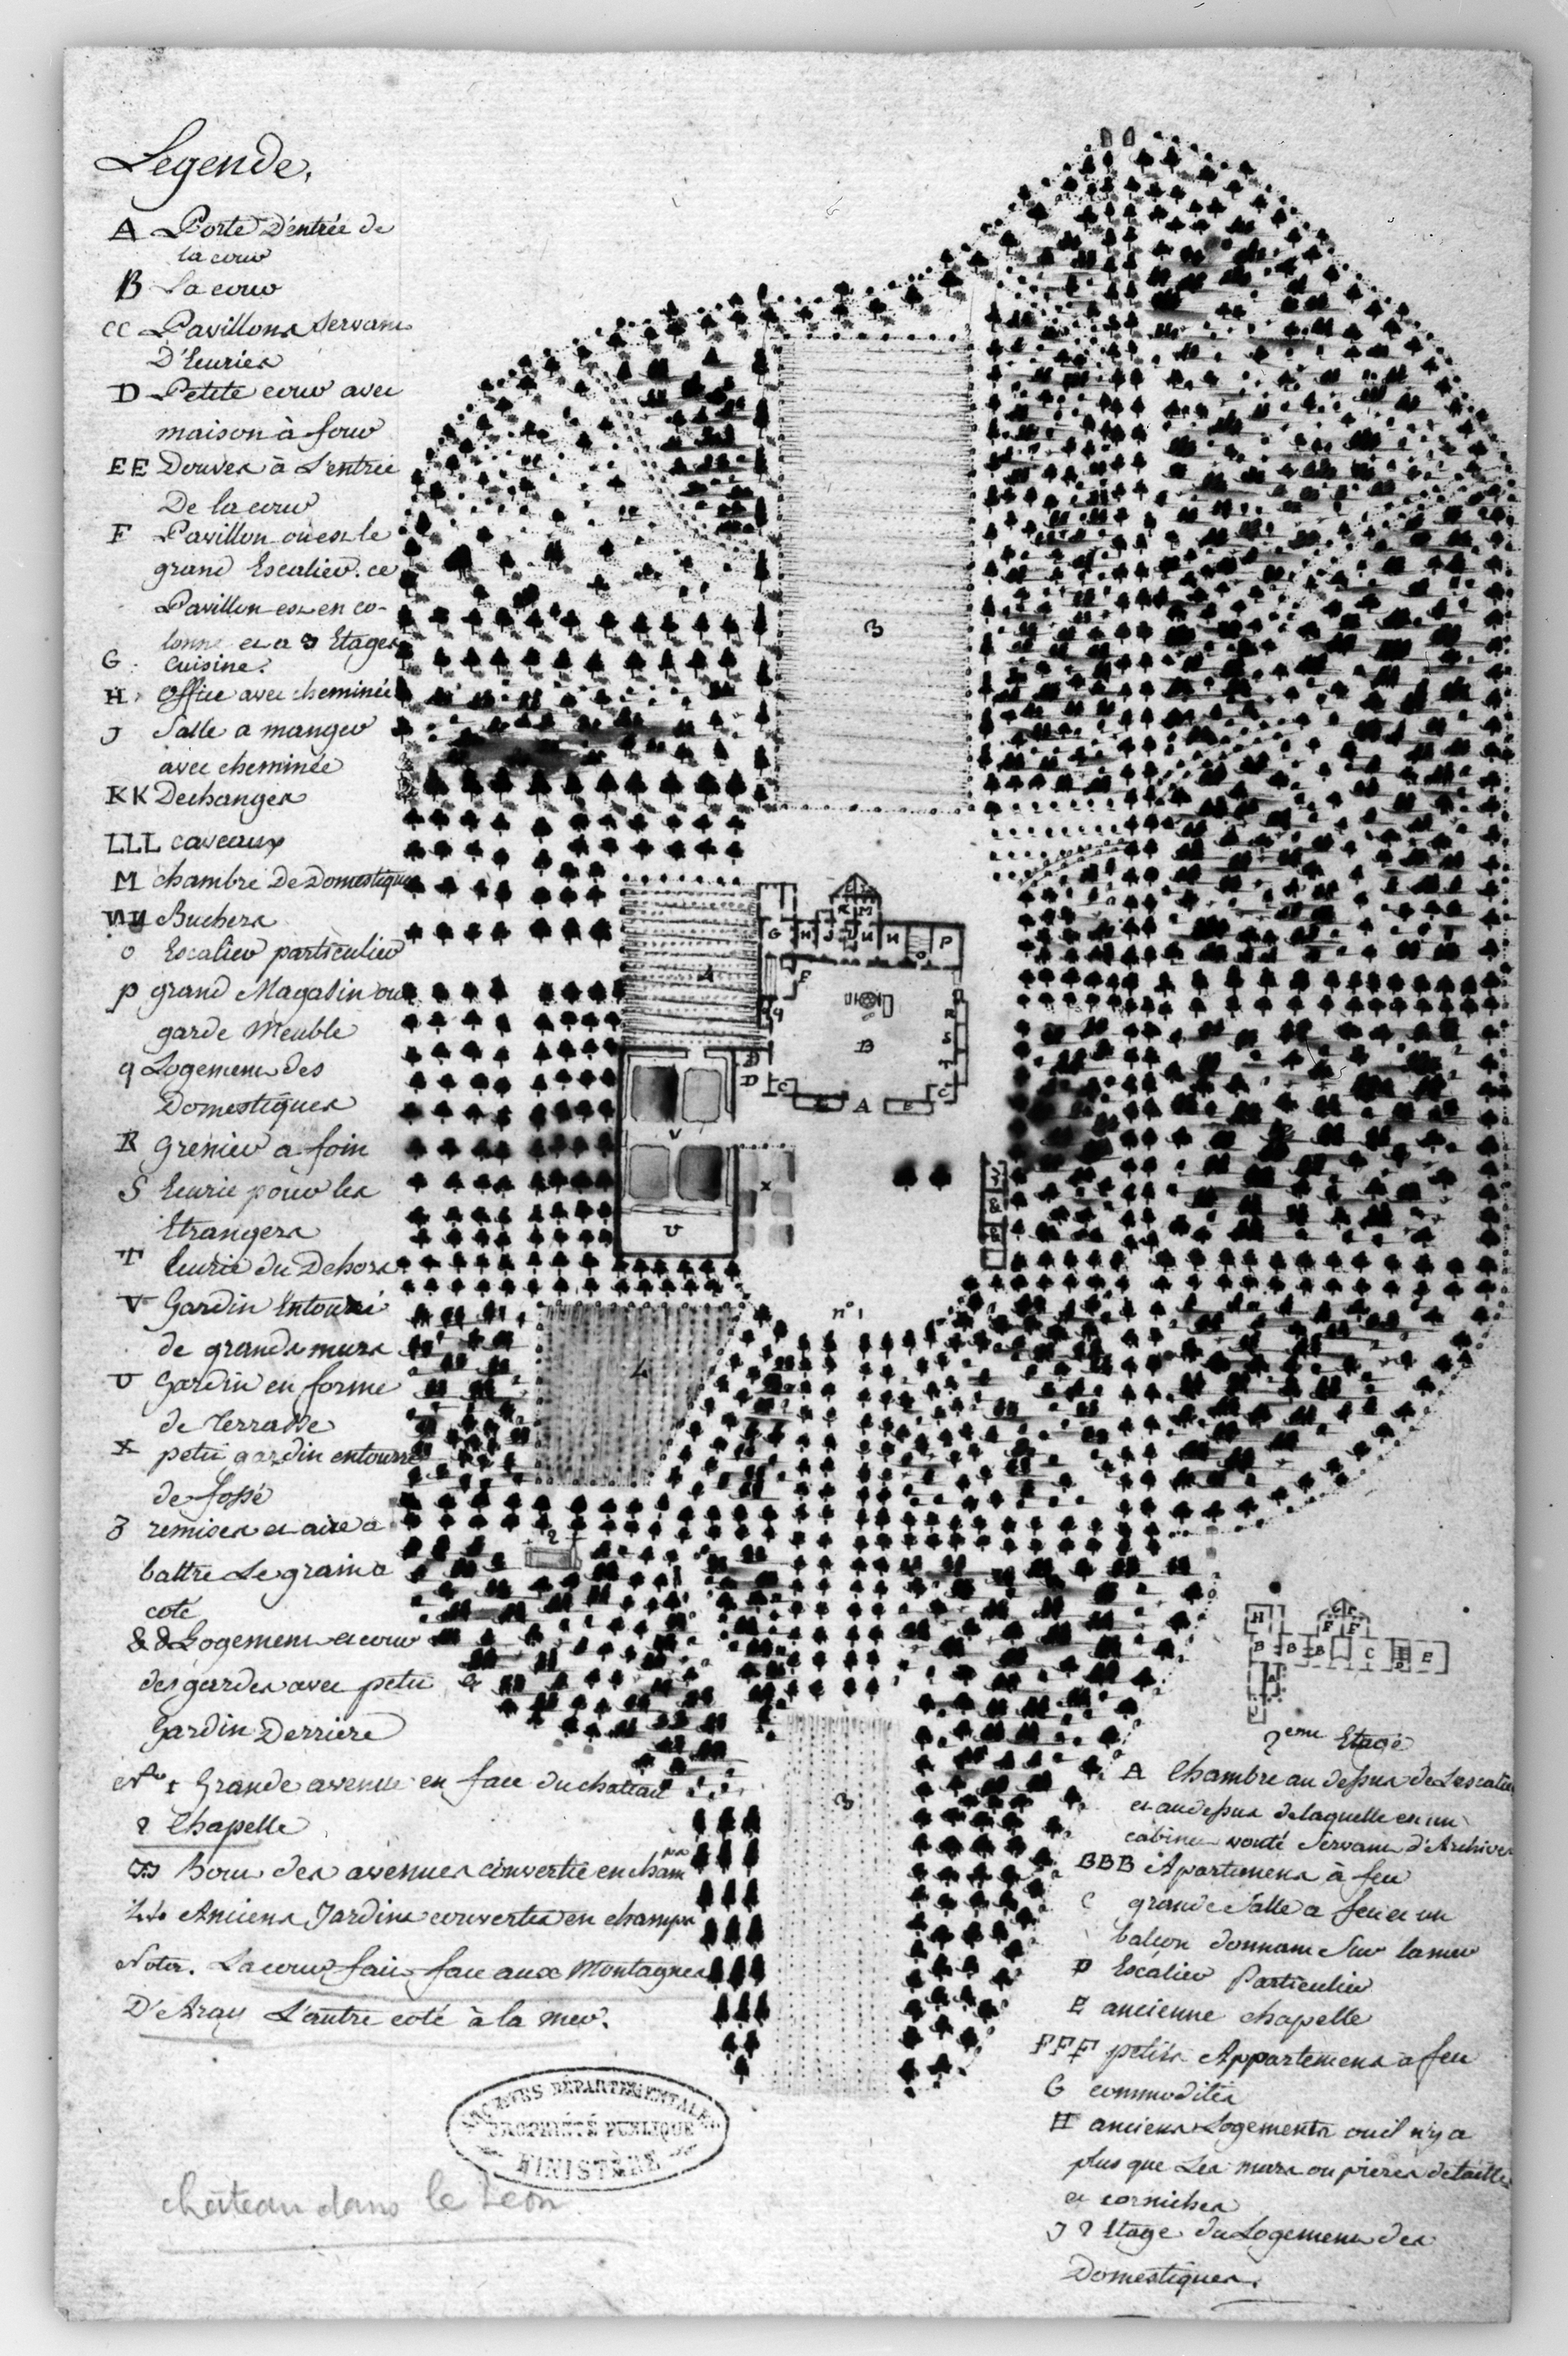 Legende.
A Porte D'entrée de
la cour
B La cour
CC Pavillons Servant
D'Ecuries
D Petite cour avec
maison à four
EE Douves à L'entrée
De la cour
F Pavillon ou est le
grand Escalier. ce
Pavillon est en co-
lonne et a 3 Etages
G. Cuisine.
H. Office avec cheminée
J Salle a manger
avec cheminée
KK Dechanges
LLL caveaux
M chambre De Domestiques
NN Buchers
O Escalier particulier
P grand Magasin ou
garde Meuble
q Logement des
Domestiques
R Grenier a foin
S Ecurie pour les
Etrangers
T Ecurie du Dehors
V Gardin Entouré
de grands murs
U Gardin en forme
de Terrasse
X petit gardin entourré
de fossé
3 remises et aire a
battre Le grain a
coté
& & Logement et cour
des gardes avec petit
Gardin Derriere
N° 1 Grande avenue en face du chateau
2 Chapelle
33 Bout des avenues convertie en champs
44 Anciens Jardins convertis en champs
Nota. La cour fait face aux Montagnes
D'Aray L'autre coté à la mer.
ARCHIVES DÉPARTEMENTALES
PROPRIÉTÉ PUBLIQUE
FINISTÈRE
château dans le Léon
3
G H J K M N H P
O
F
4
q
B
R
S
T
D
D
C
E A E
C
V
X
3
&
&
U
n° 1
4
2
3
H
G
F F
B B B C D E
A
J
2eme Etage
A Chambre au dessus de L'escalier
et au dessus de laquelle est un
cabinet vouté Servant d'Archives
BBB Apartemens à feu
C grande Salle a feu et un
balcon donnant Sur la mer
D Escalier Particulier
E ancienne chapelle
FFF petits Appartemens a feu
G commodités
H anciens Logements ou il n'y a
plus que Les murs ou pieres de taille
et corniches
J 2 Etage du Logement des
Domestiques.